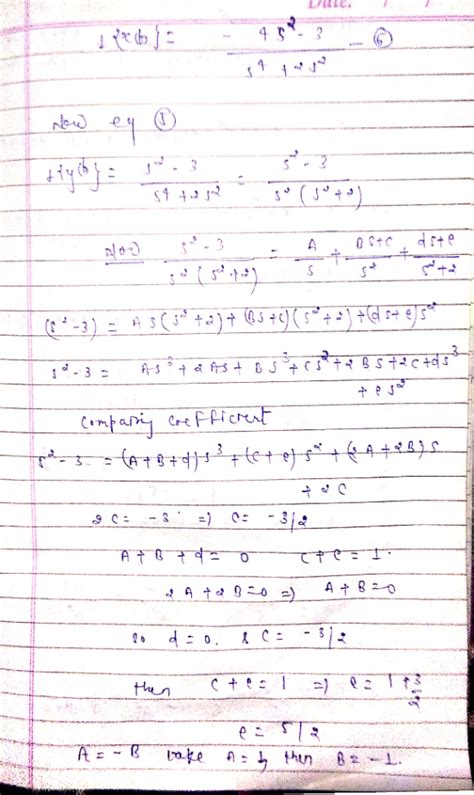 Date.
L{x(t)} = - (4s² - 3)/(s⁴ + 2s²) - ⑥
Now eq ⑤
L{y(t)} = (s² - 3)/(s⁴ + 2s²) = (s² - 3)/(s² (s² + 2))
Now (s² - 3)/(s² (s² + 2)) = A/s + (Bs+c)/s² + (ds+e)/(s²+2)
(s² - 3) = A s(s² + 2) + (Bs+c)(s² + 2) + (ds+e)s²
s² - 3 = As³ + 2As + Bs³ + cs² + 2Bs + 2c + ds³
+ es²
Comparing coefficient
s² - 3 = (A+B+d)s³ + (c+e)s² + (2A+2B)s
+ 2c
2c = -3 => c = -3/2
A + B + d = 0 c + e = 1.
2A + 2B = 0 => A + B = 0
so d = 0. & c = -3/2
then c + e = 1 => e = 1 + 3/2
e = 5/2
A = -B take A = 1, then B = -1.